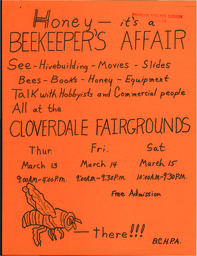 Honey - it's a
BEEKEEPER'S AFFAIR
See - Hivebuilding - Movies - Slides
Bees - Books - Honey - Equipment
Talk with Hobbyists and Commercial people
All at the
CLOVERDALE FAIRGROUNDS
Thur Fri. Sat
March 13 March 14 March 15
9:00A.M.-9:30P.M. 9:00A.M.-9:30P.M. 10:00A.M.-9:30P.M.
Free Admission
— there!!!
B.C.H.P.A.